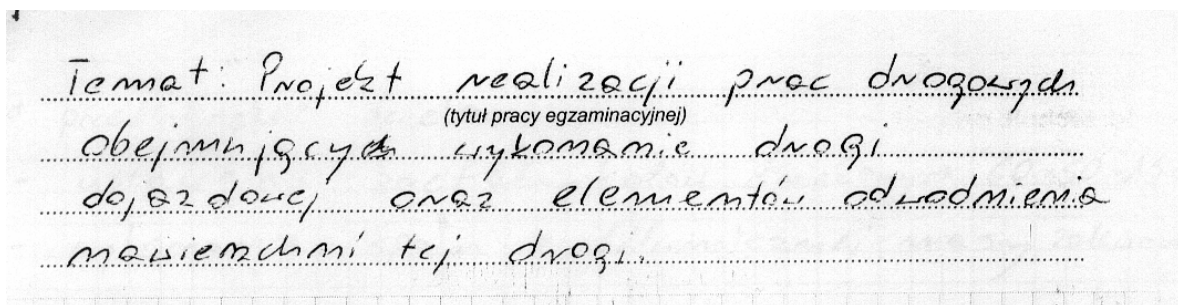 Temat: Projekt realizacji prac drogowych
(tytuł pracy egzaminacyjnej)
obejmujących wykonanie drogi
dojazdowej oraz elementów odwodnienia
nawierzchni tej drogi.